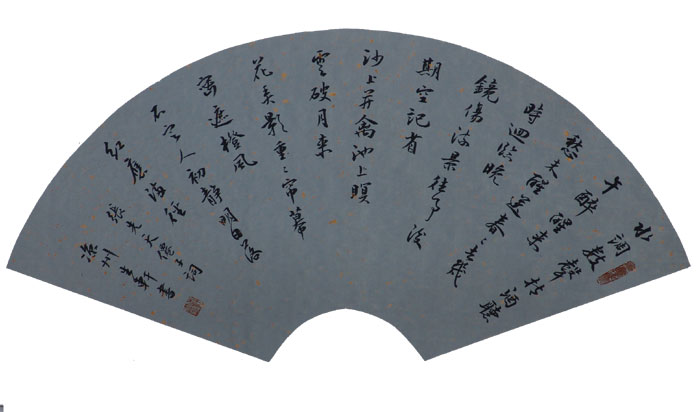 水調數聲持酒聽
午醉醒来
愁未醒送春々去幾
時迴臨晚
鏡傷流景往事後
期空記省
沙上并禽池上瞑
雲破月来
花弄影重々帘幕
密遮橙風
不定人初靜明日落
紅應滿徑
張先天僊子詞
滄州軒書